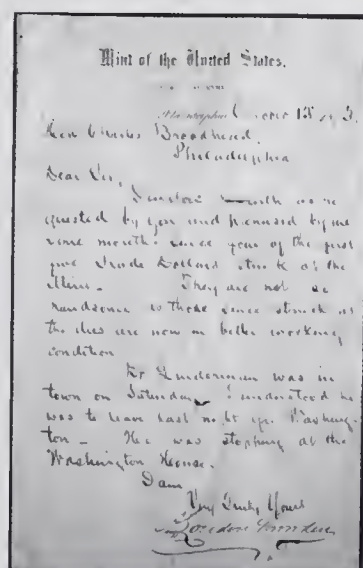 Mint of the United States.
Philadelphia
Gen Charles Broadhead.
Philadelphia
Dear Sir,
I enclose herewith as re
quested by you and promised by me
some months since four of the first
five Trade Dollars struck at the
Mint. They are not so
handsome as those since struck as
the dies are now in better working
condition
Dr Linderman was in
town on Saturday I understood he
was to leave last night for Washing-
ton - He was stopping at the
Washington House.
I am
Very Truly Yours